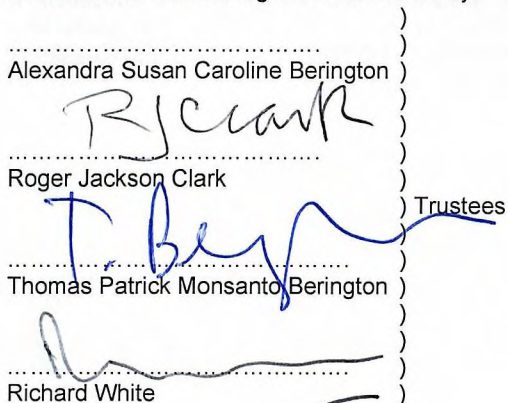 )
.................................... )
Alexandra Susan Caroline Berington )
RJClark )
.................................... )
Roger Jackson Clark )
T. Be ) Trustees
.................................... )
Thomas Patrick Monsanto Berington )
)
.................................... )
Richard White )